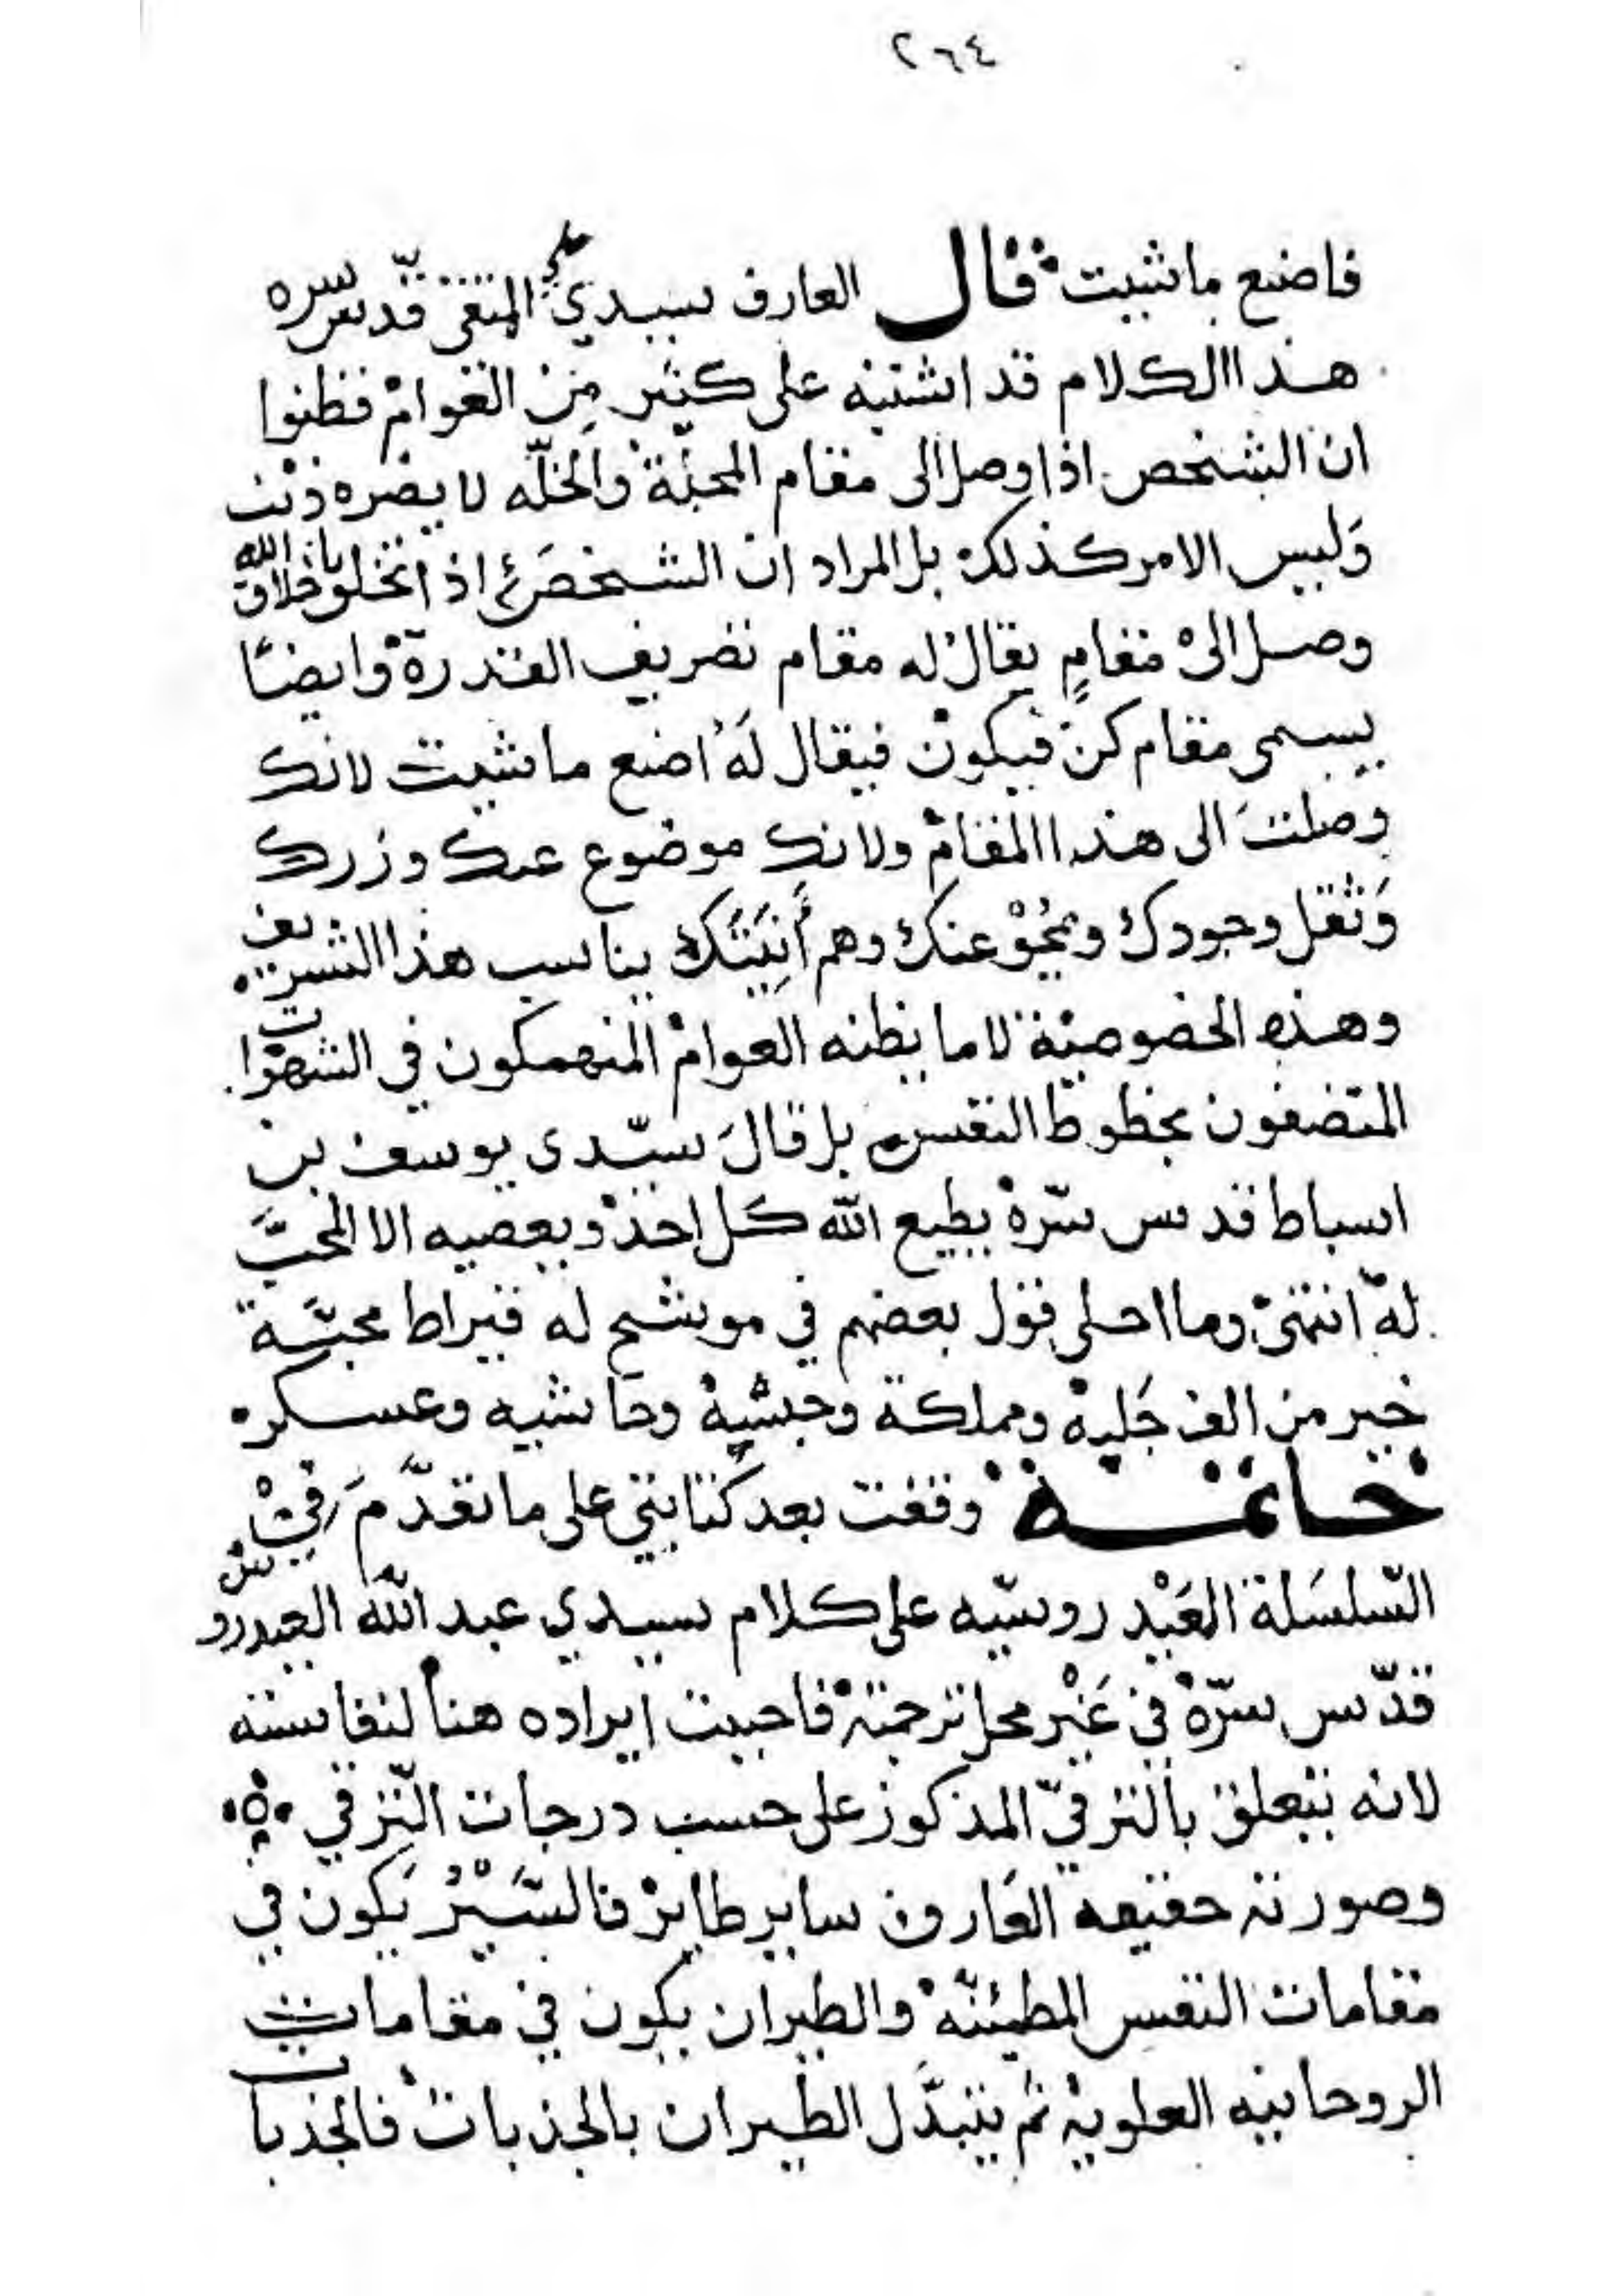 ٢٦٤
فاصنع ما شيت قال العارف سيدي علي المتقي قدس سره
هذا الكلام قد اشتبه على كثير من العوام فظنوا
ان الشخص اذا وصل الى مقام المحبّة والخلّه لا يضره ذنب
وَليس الامر كذلك بل المراد ان الشخص اذا تخلق باخلاق الله
وصل الىْ مقامٍ يقال له مقام تصريف القدرة وايضًا
يسمى مقام كن فيكون فيقال لَهُ اصنع ما شيت لانك
وصلتَ الى هذا المقام ولانك موضوع عنك وزرك
وَثقل وجودك ومحو عنك وهم أَنِيَّتَك يناسب هذا التشريف
وهذه الخصوصية لا ما يظنه العوام المنهمكون في الشهوات
المتصفون بحظوظ النفس بل قالَ سيّدى يوسف بن
اسباط قدس سّره يطيع الله كل احد ويعصيه الا المحبَّ
له انتهىْ وما احلى قول بعضهم في موشح له قيراط محبَّة
خير من الف جَلبة ومملكة وحبشية وحاشيه وعسكره
خاتمة وقفت بعد كتابتي على ما تقدّمَ في
السّلسَلة العَيْدروسّيه على كلام سيدي عبد الله العيدروس
قدّس سرّهْ في غَيْر محل ترجمته فاحببت ايراده هنا لنفاسته
لانه يتعلق بالترقيّ المذكور على حسب درجات التّرقي
وصورته حقيقه العَارف ساير طاير فالسَّيْرُ يَكون في
مقامات النفس المطمئنّه والطيران يكون في مقامات
الروحانيه العلويه ثم يتبدَّل الطيران بالجذبات فالجذبات